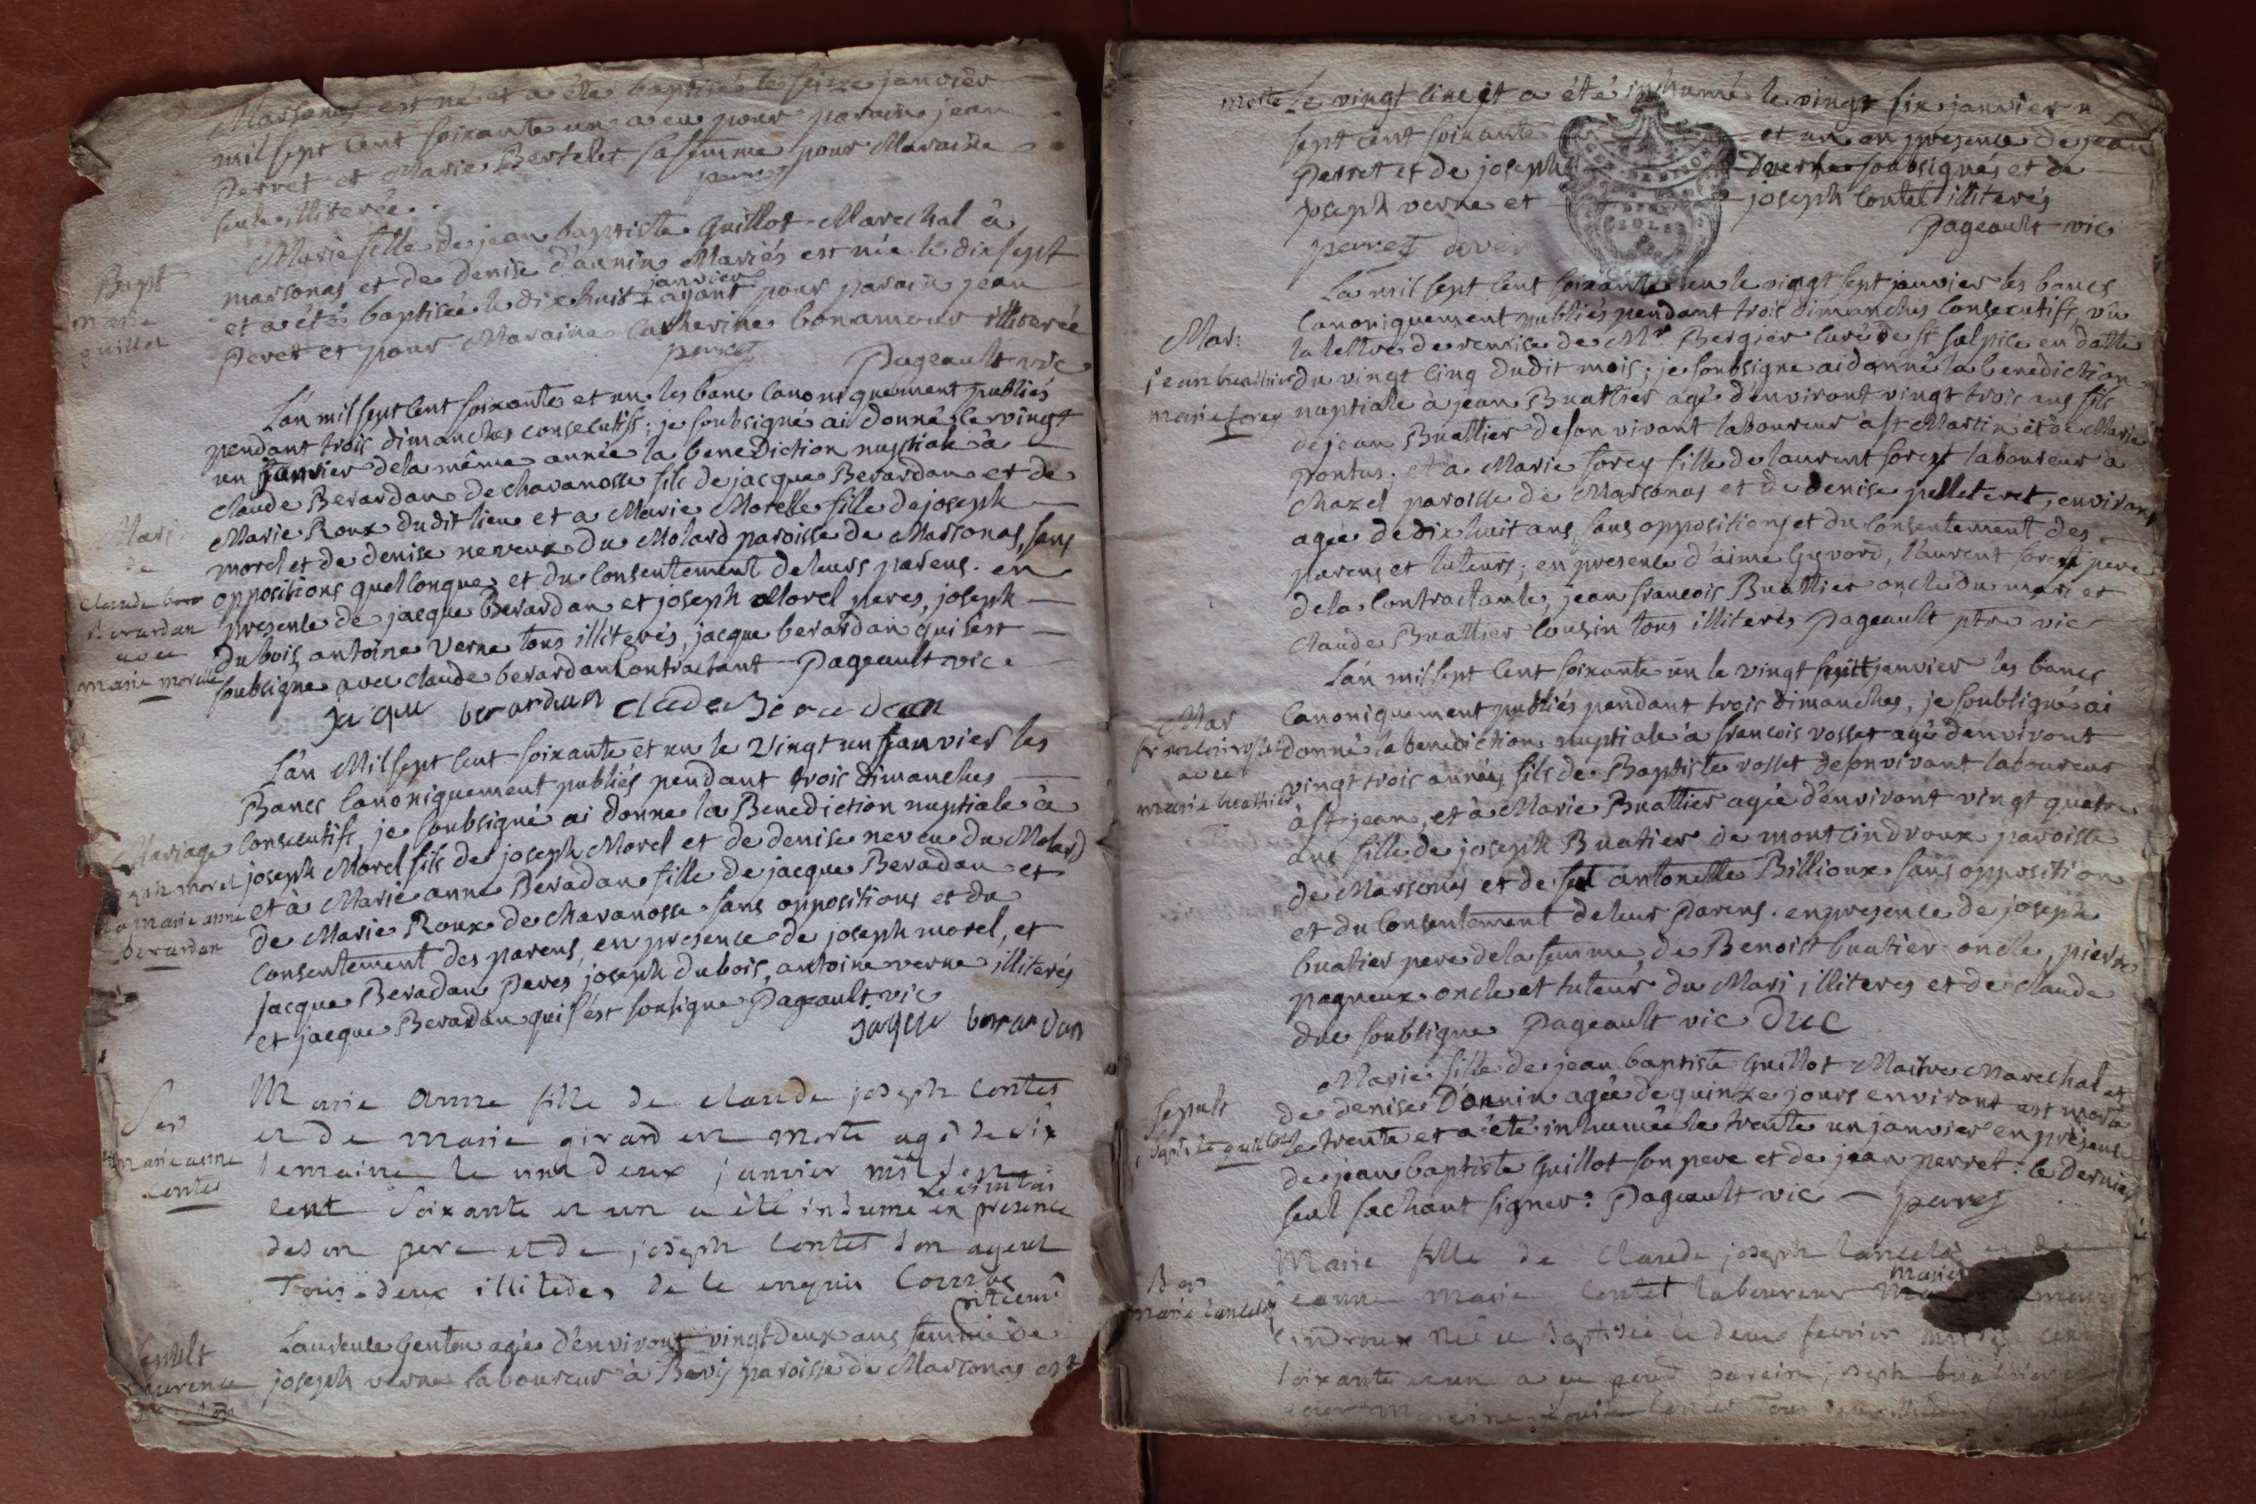 Marsonas est né et a été baptisé le seize janvier
mil sept cent soixante un a eu pour parain jean
Perret et Marie Bertelet sa femme pour Maraine
perret
seule illiterée.
Bapt
marie
guillot
Marie fille de jean baptiste Guillot Marechal à
marsonas et de denise d'annin Mariés est née le dix sept
et a été baptisée le dix huit janvier ayant pour parain jean
Peret et pour Maraine Catherine bonamour illiterée
perret Pageault vic
L'an mil sept cent soixante et un les banc canoniquement publiés
pendant trois dimanches consecutifs; je soubsigné ai donné le vingt
un janvier dela même année la benediction nuptiale à
claude Berardan de chavanosse fils de jacque Berardan et de
Marie Roux dudit lieu et a Marie Morelle fille de joseph
morel et de denise neveux du Molard paroisse de Marsonas, sans
oppositions quelconque et du consentement de leurs parens. en
presence de jacque Berardan et joseph Morel peres, joseph
dubois, antoine Verne tous illiterés, jacque berardan qui s'est
soubsigne avec claude berardan contractant Pageault vic.
Mari
de
claude
Berardan
avec
marie morelle
jaque berardan clade Beradean
L'an Mil sept cent soixante et un le Vingt un janvier les
Bancs canoniquement publiés pendant trois dimanches
consecutifs je soubsigné ai donné la Benediction nuptiale à
joseph Morel fils de joseph Morel et de denise neveu du Molard
et à Marie anne Beradan fille de jacque Beradan et
de Marie Roux de chavanosse sans oppositions et du
consentement des parens, en presence de joseph morel, et
jacque Beradan Peres joseph dubois, antoine verne illiterés
et jacque Beradan qui s'est sousigne Pageault vic
Mariage
morel
a marie anne
berardan
jaque berardan
Marie Anne fille de claude joseph contet
et de marie girard est morte agé de six
semaine le vint deux janvier mil sept
cent soixante et un a été inhumé en presence
de son pere et de joseph contet son ayeul
Tous deux illiterés de ce enquis Combe
Sep
marie anne
contet
Laurence Genton agée d'environt vingt deux ans femme de
joseph verne laboureur à Bevy paroisse de Marsonas est
Sepult
Laurence
morte Le vingt cinc et a été inhumé le vingt six janvier
sept cent soixante et un en presence de jean
Perret et de joseph deverne soubsignés et de
joseph verne et joseph contet illiterés
perret Pageault vic
GENERALITE
L'a mil sept cent soixante un le vingt sept janvier les bancs
canoniquement publiés pendant trois dimanches consecutifs, vu
la lettre de remise de Mr Bergier curé de st sulpice en datte
du vingt cinq dudit mois; je soubsigne ai donné la benediction
nuptiale à jean Buattier agé d'environt vingt trois ans fils
de jean Buattier de son vivant laboureur à st Martin et de Marie
pontus; et à Marie forey fille de laurent forest laboureur à
chazel paroisse de Marsonas et de denise pelleteret, environt
agée de dix huit ans, sans oppositions et du consentement des
parens et tuteurs; en presence d'aimé Gyvord, laurent forest pere
de la contractante, jean francois Buattier oncle du mari et
claude Buattier cousin tous illiterés Pageault ptre vic
Mar:
jean buattier
marie forey
L'an mil sept cent soixante un le vingt sept janvier les bancs
canoniquement publiés pendant trois dimanches, je soubsigné ai
donné la benediction nuptiale à francois vosset agé d'environt
vingt trois années, fils de Baptiste vosset de son vivant laboureur
à st jean, et à Marie Buattier agée d'environt vingt quatre
ans fille de joseph Buatier de montcindroux paroisse
de Marsonas et de antonette Billioux sans opposition
et du consentement de leur Parens. en presence de joseph
buatier pere de la femme, de Benoist buatier oncle, pierre
pagneux oncle et tuteur du Mari illiteres et de claude
duc soubsigne Pageault vic Duc
Mar
avec
marie buattier
Marie fille de jean baptiste Guillot Maitre Marechal et
de denise D'annin agée de quinze jours environt est morte
le trente et a été inhumée le trente un janvier en presence
de jean baptiste Guillot son pere et de jean perret: le dernier
seul sachant signer: Pageault vic — perret
Sepult
guillot
Marie fille de Claude joseph lancelot et de
jeanne marie contet laboureur
cindroux née et baptisée le deux fevrier mil sept cent
soixante et un a eu pour parein joseph buattier
Bap
marie lancelot